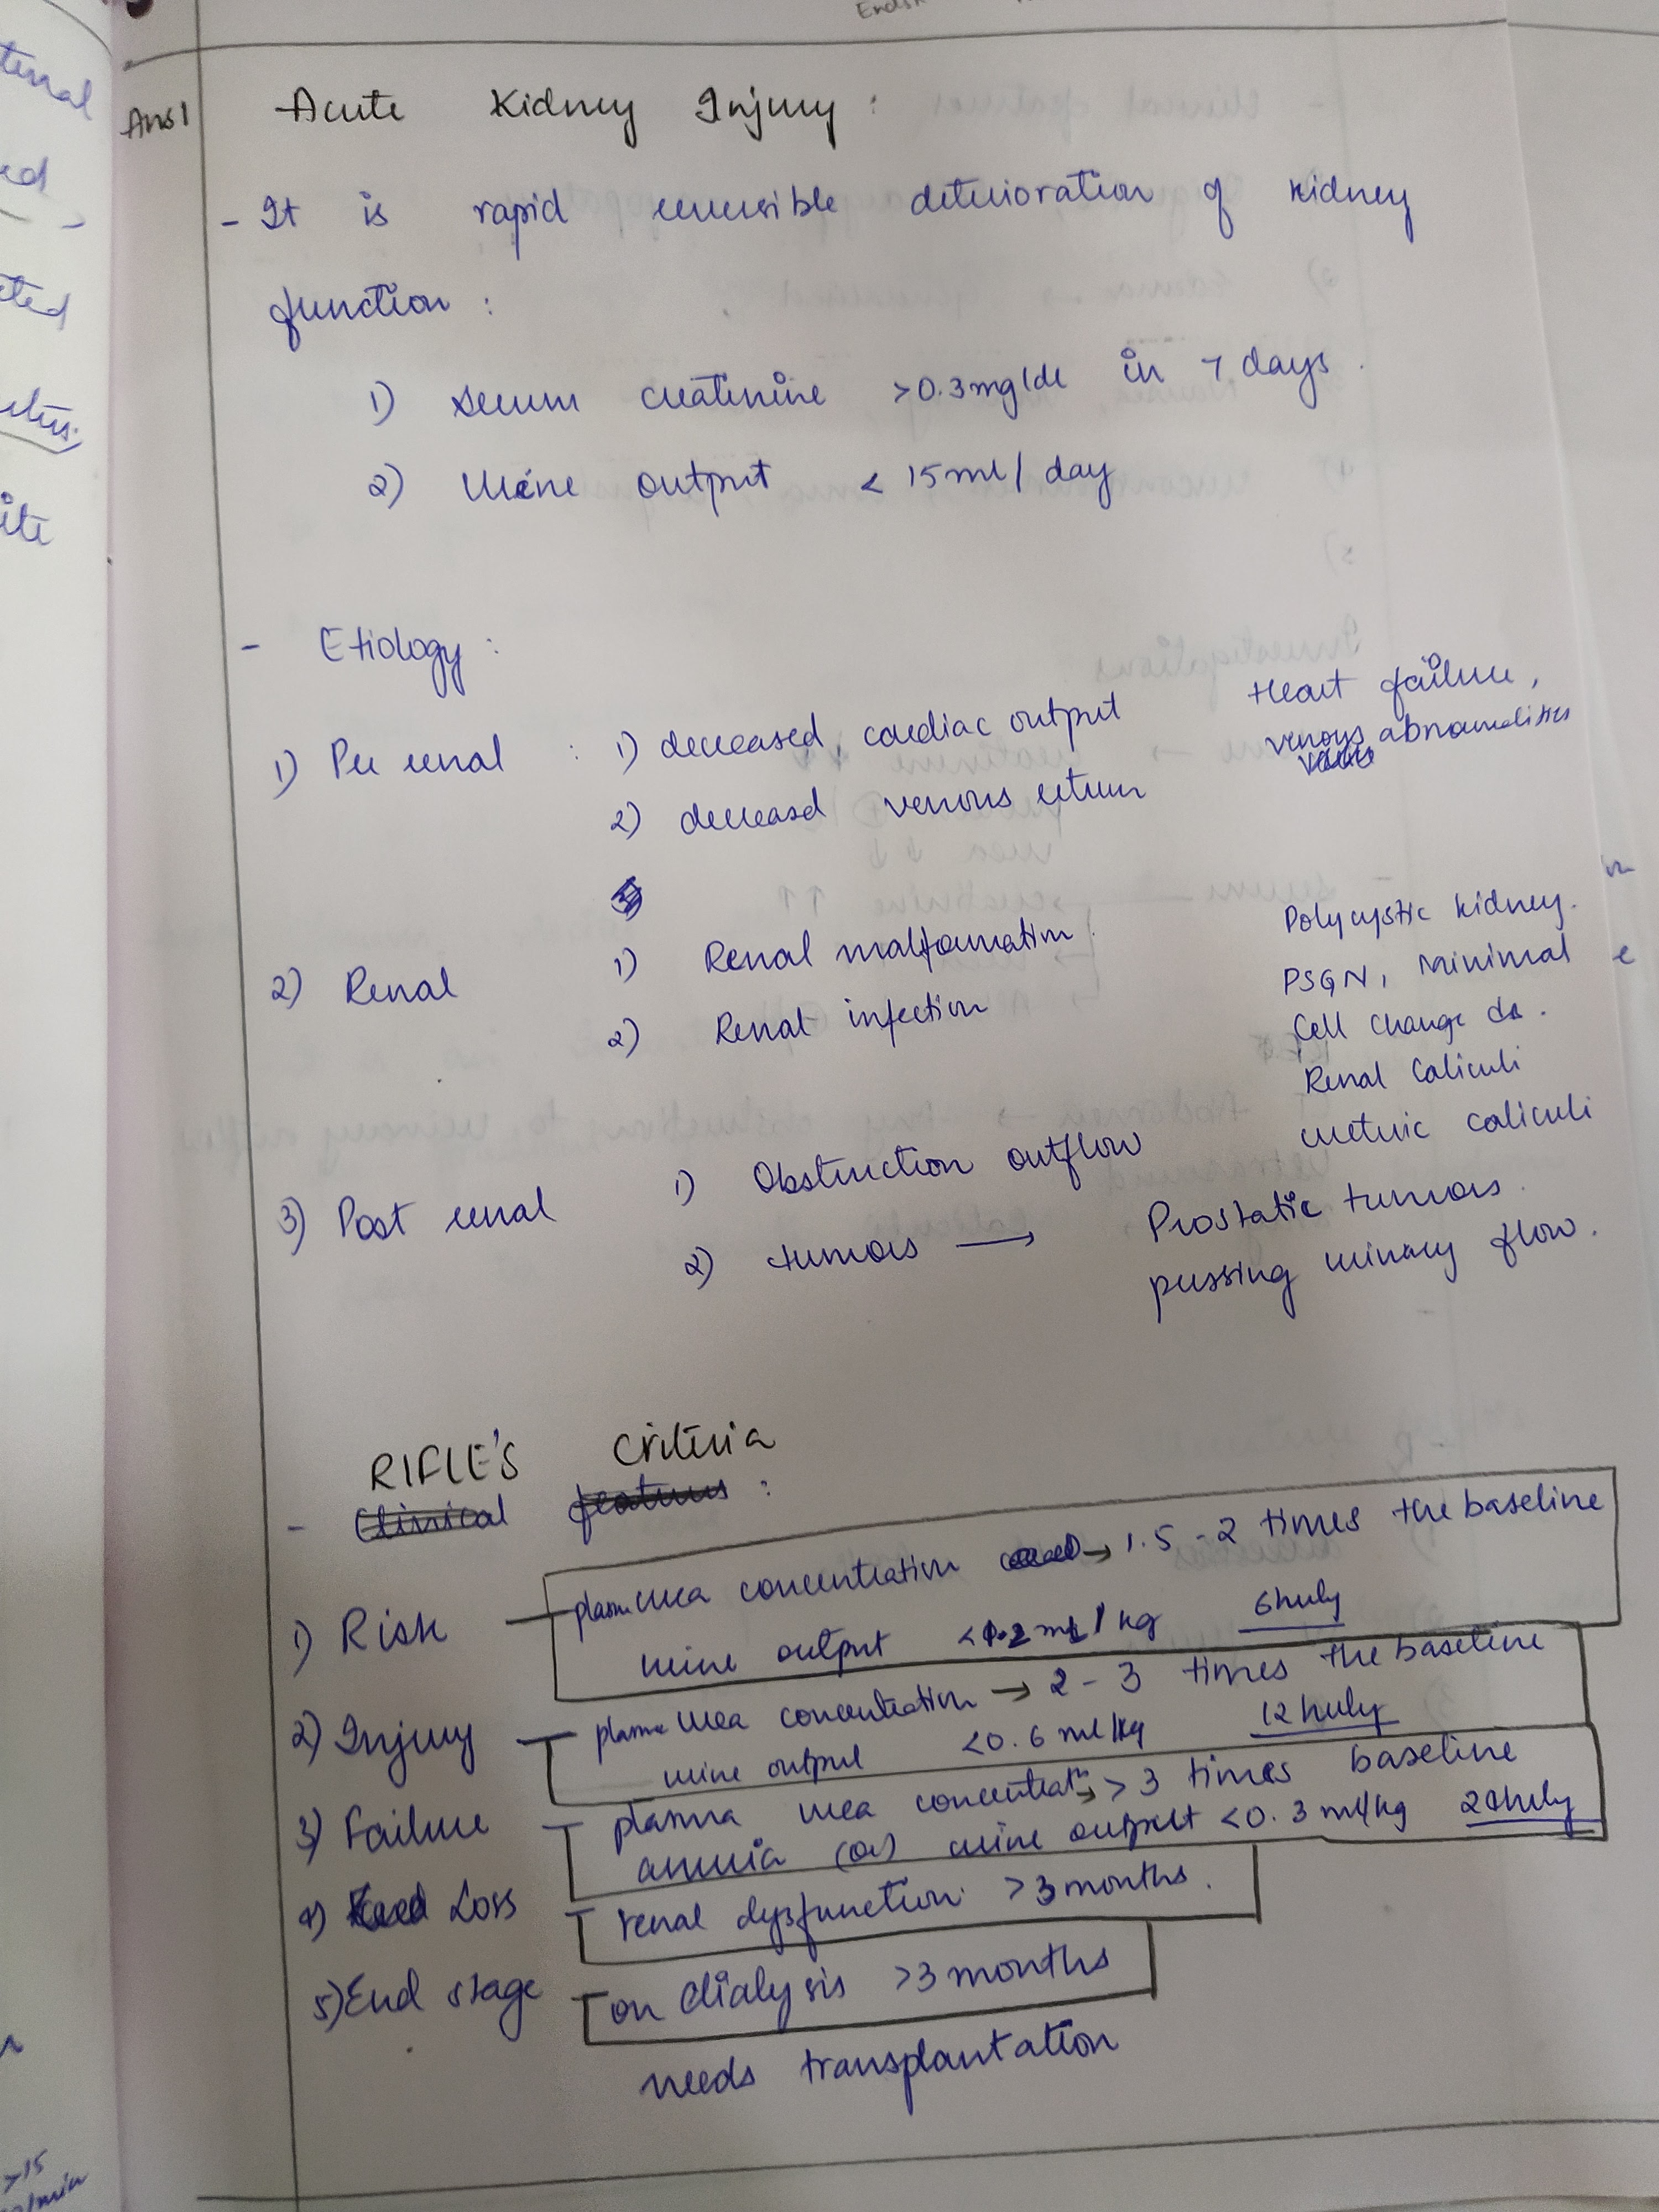 Ans 1
Acute Kidney Injury :
- It is rapid reversible deterioration of kidney
function :
1) serum creatinine >0.3mg/dl in 7 days.
2) Urine output < 15ml/day
- Etiology :
1) Pre renal : 1) decreased cardiac output Heart failure,
venous abnormalities
2) decreased venous return
2) Renal 1) Renal malformation Polycystic kidney.
2) Renal infection PSGN, Minimal
Cell change ds.
Renal Caliculi
3) Post renal 1) Obstruction outflow ureteric caliculi
2) tumors → Prostatic tumors.
pressing urinary flow.
RIFLE'S Criteria
- Clinical features :
1) Risk plasma urea concentration → 1.5 - 2 times the baseline
urine output ml/kg 6hrly
2) Injury plasma urea concentration → 2 - 3 times the baseline
urine output <0.6 ml/kg 12hrly
3) Failure plasma urea concentratn > 3 times baseline
anuria (or) urine output <0.3 ml/kg 24hrly
4) Loss renal dysfunction >3 months.
5) End stage on dialysis >3 months
needs transplantation
ternal
ed,
cted
ite
>15